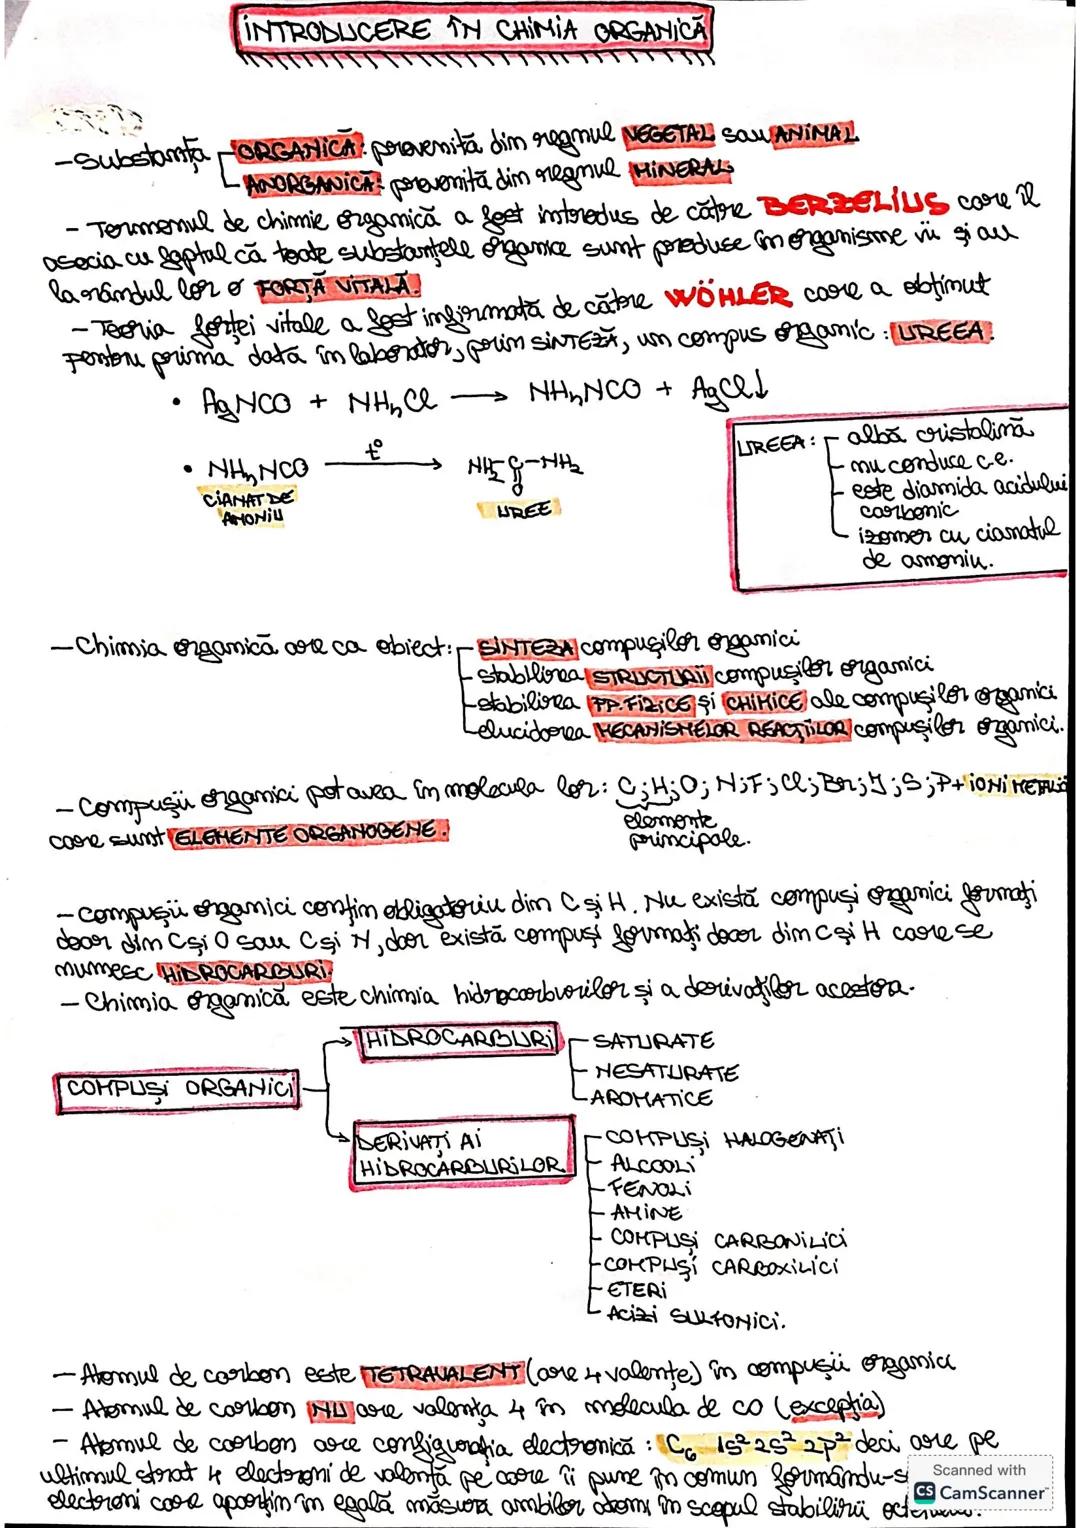 INTRODUCERE ÎN CHIMIA ORGANICĂ
-Substanța ORGANICĂ: provenită din regnul VEGETAL sau ANIMAL
ANORGANICĂ: provenită din regnul MINERAL
- Termenul de chimie organică a fost introdus de către BERZELIUS care îl
asocia cu faptul că toate substanțele organice sunt produse în organisme vii și au
la rândul lor o FORȚĂ VITALĂ.
- Teoria forței vitale a fost infirmată de către WÖHLER care a obținut
pentru prima dată în laborator, prin SINTEZĂ, un compus organic: UREEA.
• AgNCO + NH₄Cl → NH₄NCO + AgCl↓
• NH₄NCO t° → NH₂-C-NH₂
O
CIANAT DE
AMONIU
UREE
UREEA: - albă cristalină
- nu conduce c.e.
- este diamida acidului
carbonic
- izomer cu cianatul
de amoniu.
-Chimia organică are ca obiect: - SINTEZA compușilor organici
- stabilirea STRUCTURII compușilor organici
- stabilirea PP.FIZICE și CHIMICE ale compușilor organici
- elucidarea MECANISMELOR REACȚIILOR compușilor organici.
- Compușii organici pot avea în molecula lor: C;H;O;N;F;Cl;Br;I;S;P+IONI METALICI
care sunt ELEMENTE ORGANOGENE.
elemente
principale.
- Compușii organici conțin obligatoriu din C și H. Nu există compuși organici formați
doar din C și O sau C și N, dar există compuși formați doar din C și H care se
numesc HIDROCARBURI.
- Chimia organică este chimia hidrocarburilor și a derivaților acestora.
COMPUȘI ORGANICI
HIDROCARBURI
- SATURATE
- NESATURATE
- AROMATICE
DERIVAȚI AI
HIDROCARBURILOR
- COMPUȘI HALOGENAȚI
- ALCOOLI
- FENOLI
- AMINE
- COMPUȘI CARBONILICI
- COMPUȘI CARBOXILICI
- ETERI
- ACIZI SULFONICI.
- Atomul de carbon este TETRAVALENT (are 4 valențe) în compușii organici
- Atomul de carbon NU are valența 4 în molecula de CO (excepția)
- Atomul de carbon are configurația electronică: C₆ 1s² 2s² 2p² deci are pe
ultimul strat 4 electroni de valență pe care îi pune în comun formându-s
electroni care aparțin în egală măsură ambilor atomi în scopul stabilirii
Scanned with
CS CamScanner